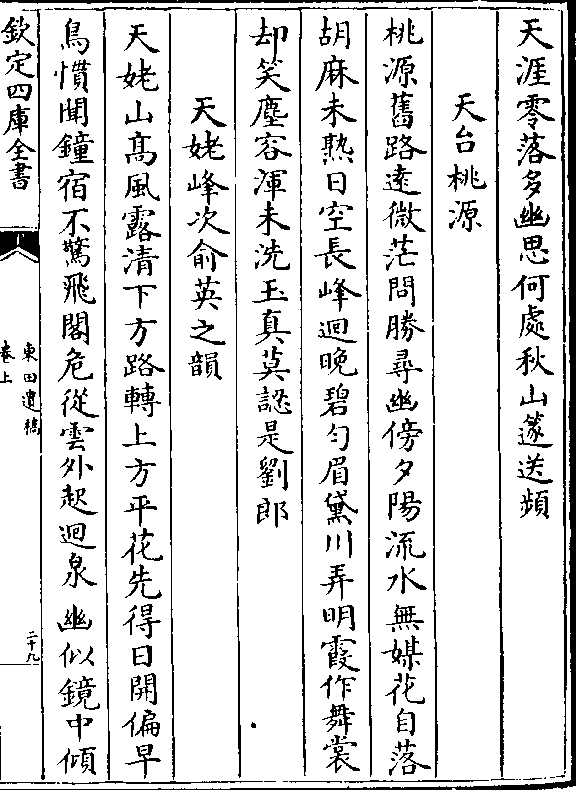 天涯零落多幽思何處秋山篴送頻
天台桃源
桃源舊路遠微茫問勝尋幽傍夕陽流水無媒花自落
胡麻未熟日空長峰迴晚碧勻眉黛川弄明霞作舞裳
却笑塵容渾未洗玉真莫認是劉郎
天姥峰次俞英之韻
天姥山髙風露清下方路轉上方平花先得日開偏早
鳥慣聞鐘宿不驚飛閣危從雲外起迴泉幽似鏡中傾
欽定四庫全書
東田遺稿
卷上
二十九